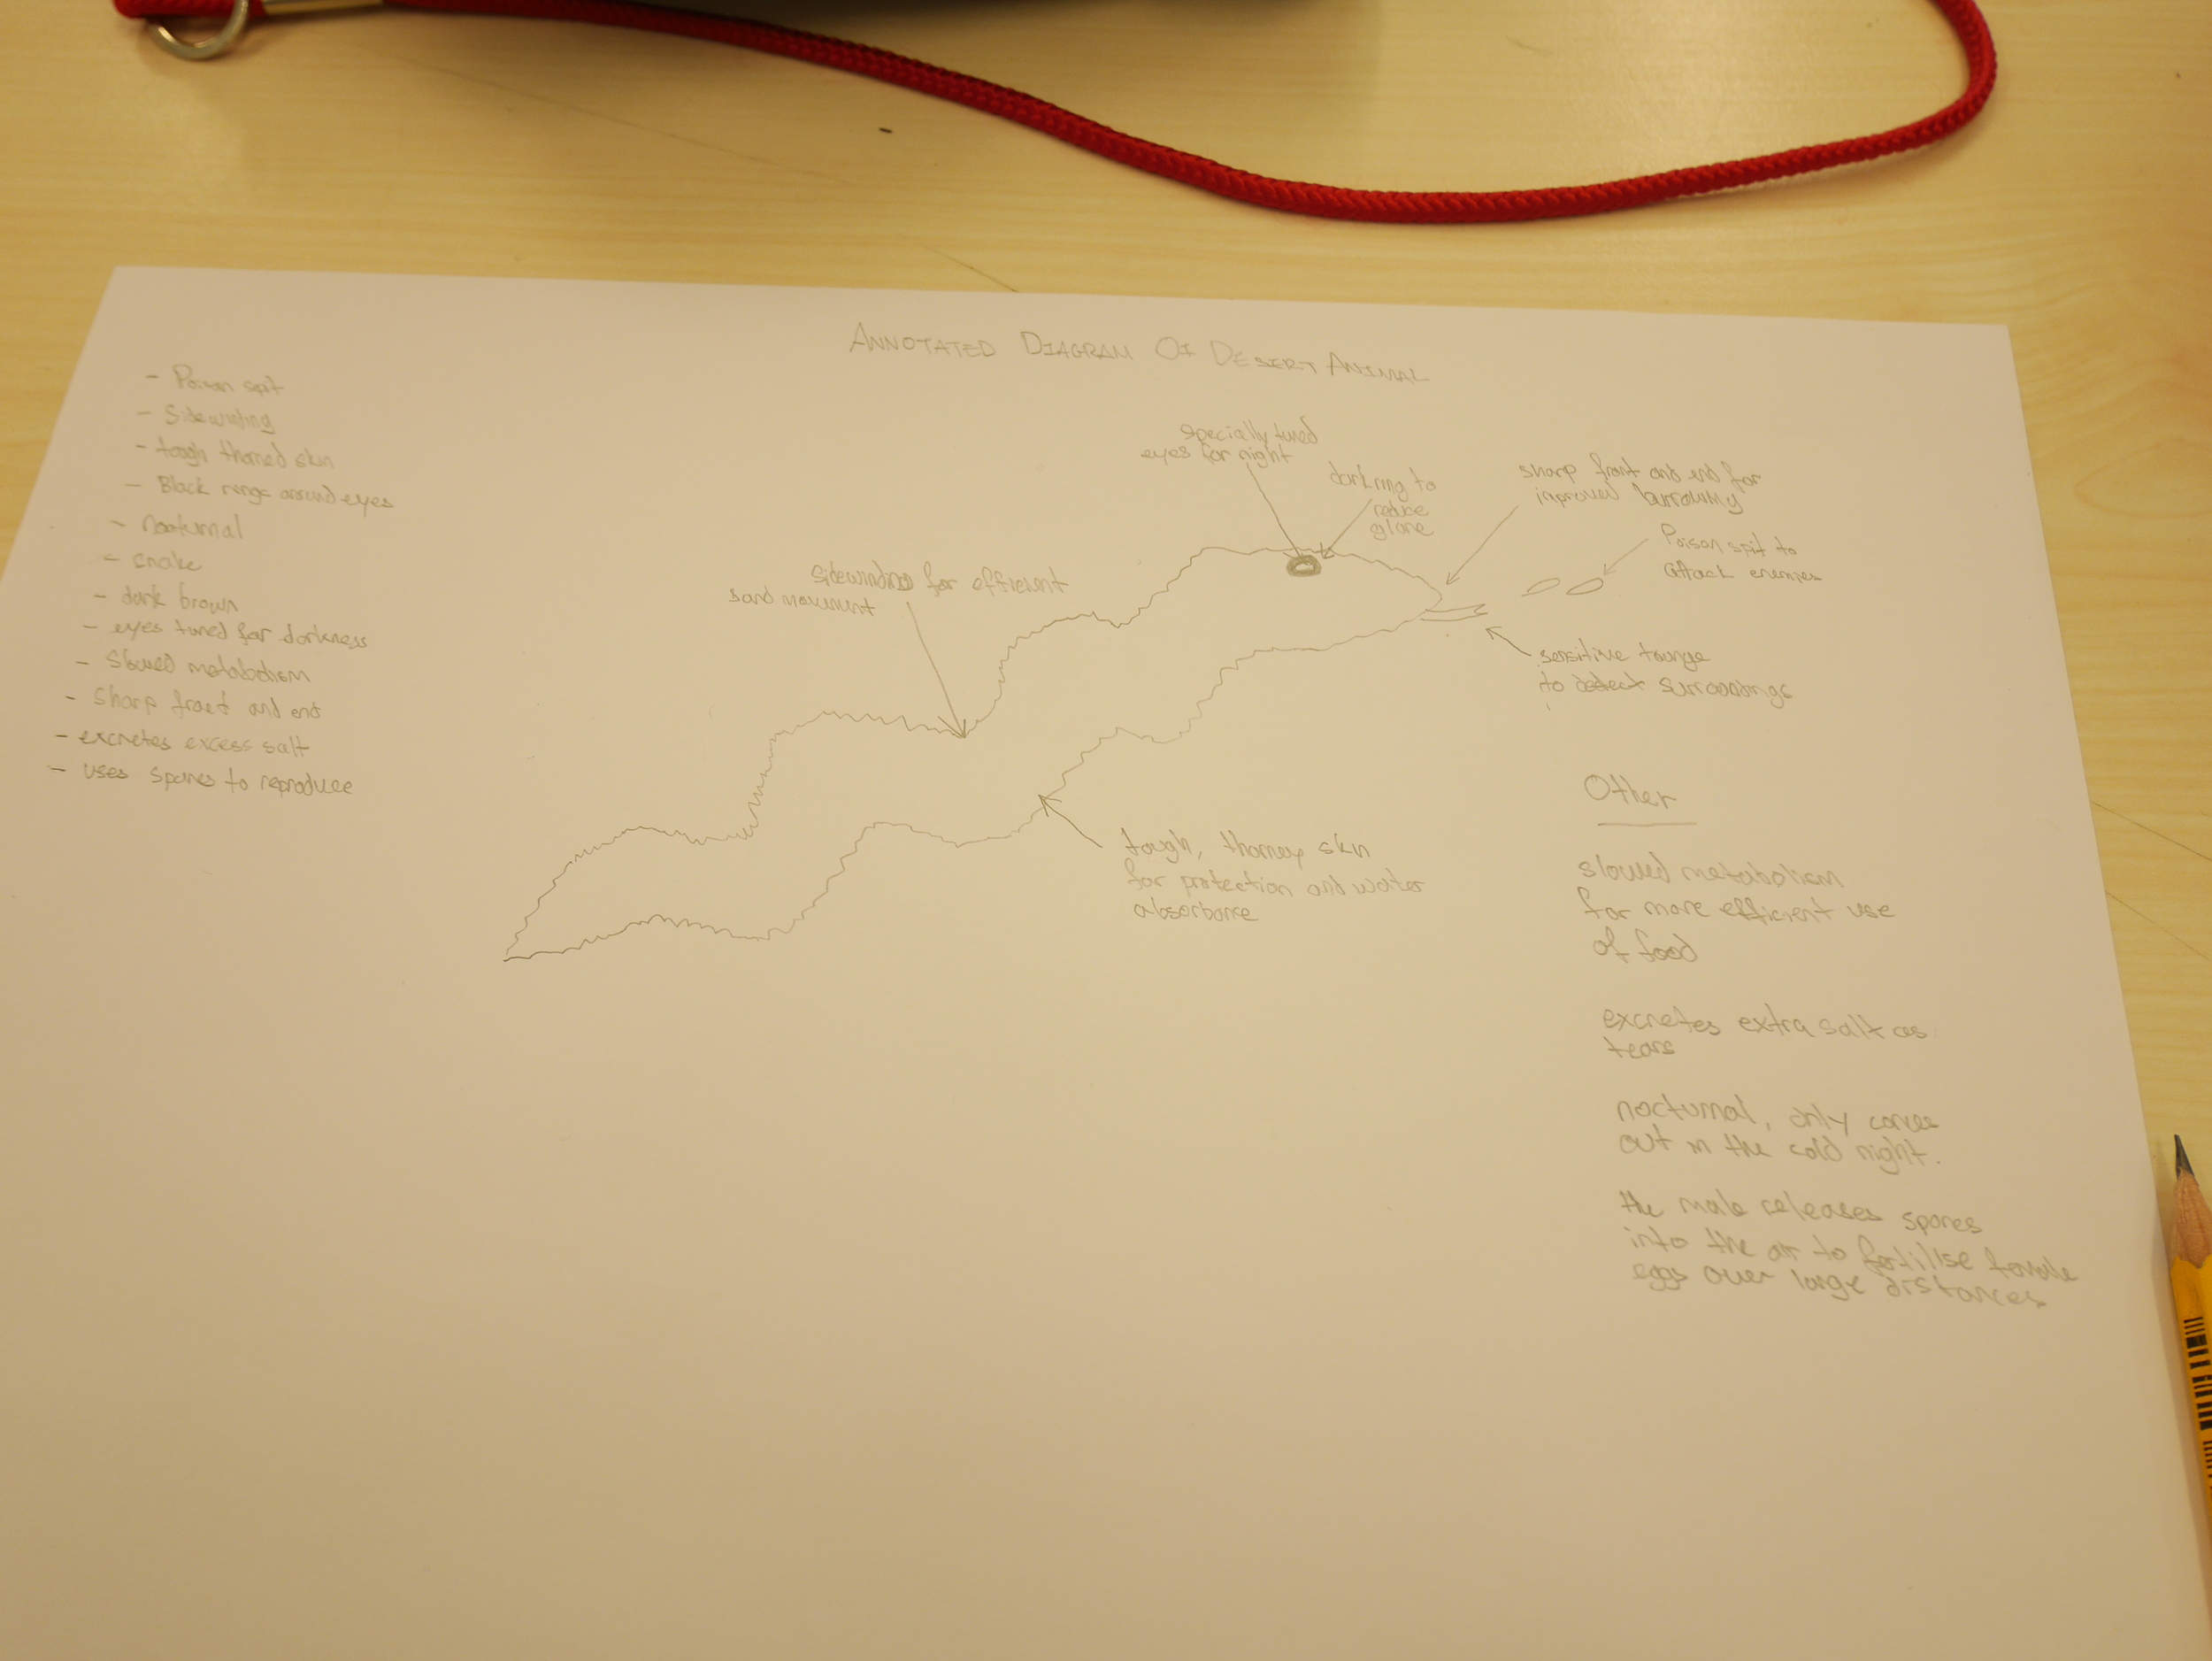 ANNOTATED DIAGRAM Of DESERT ANIMAL
- Poison spit
- Sidewinding
- tough thorned skin
- Black rings around eyes
- nocturnal
- snake
- dark brown
- eyes tuned for darkness
- Slowed metabolism
- Sharp front and end
- excretes excess salt
- uses spores to reproduce
specially tuned
eyes for night
dark ring to
reduce
glare
sharp front and end for
improved burrowing
Poison spit to
attack enemies
sidewinds for efficient
sand movement
sensitive tounge
to detect surroundings
tough, thorney skin
for protection and water
absorbance
Other
slowed metabolism
for more efficient use
of food
excretes extra salt as
tears
nocturnal, only comes
out in the cold night.
the male releases spores
into the air to fertilise female
eggs over large distances